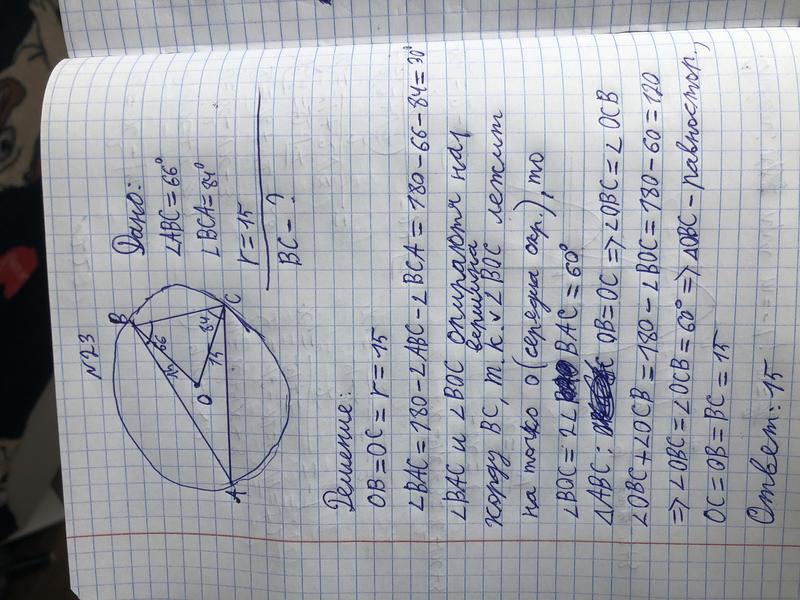 N23
B
66
15
84
C
15
O
A
Дано:
∠ABC = 66°
∠BCA = 84°
r = 15
BC - ?
Решение:
OB = OC = r = 15
∠BAC = 180 - ∠ABC - ∠BCA = 180 - 66 - 84 = 30°
∠BAC и ∠BOC опираются на 1
хорду BC, т.к. вершина ∠BOC лежит
на точке O (середина окр.), то
∠BOC = 2∠BAC = 60°
△ABC: OB = OC => ∠OBC = ∠OCB
∠OBC + ∠OCB = 180 - ∠BOC = 180 - 60 = 120
=> ∠OBC = ∠OCB = 60° => △OBC - равностор.,
OC = OB = BC = 15
Ответ: 15